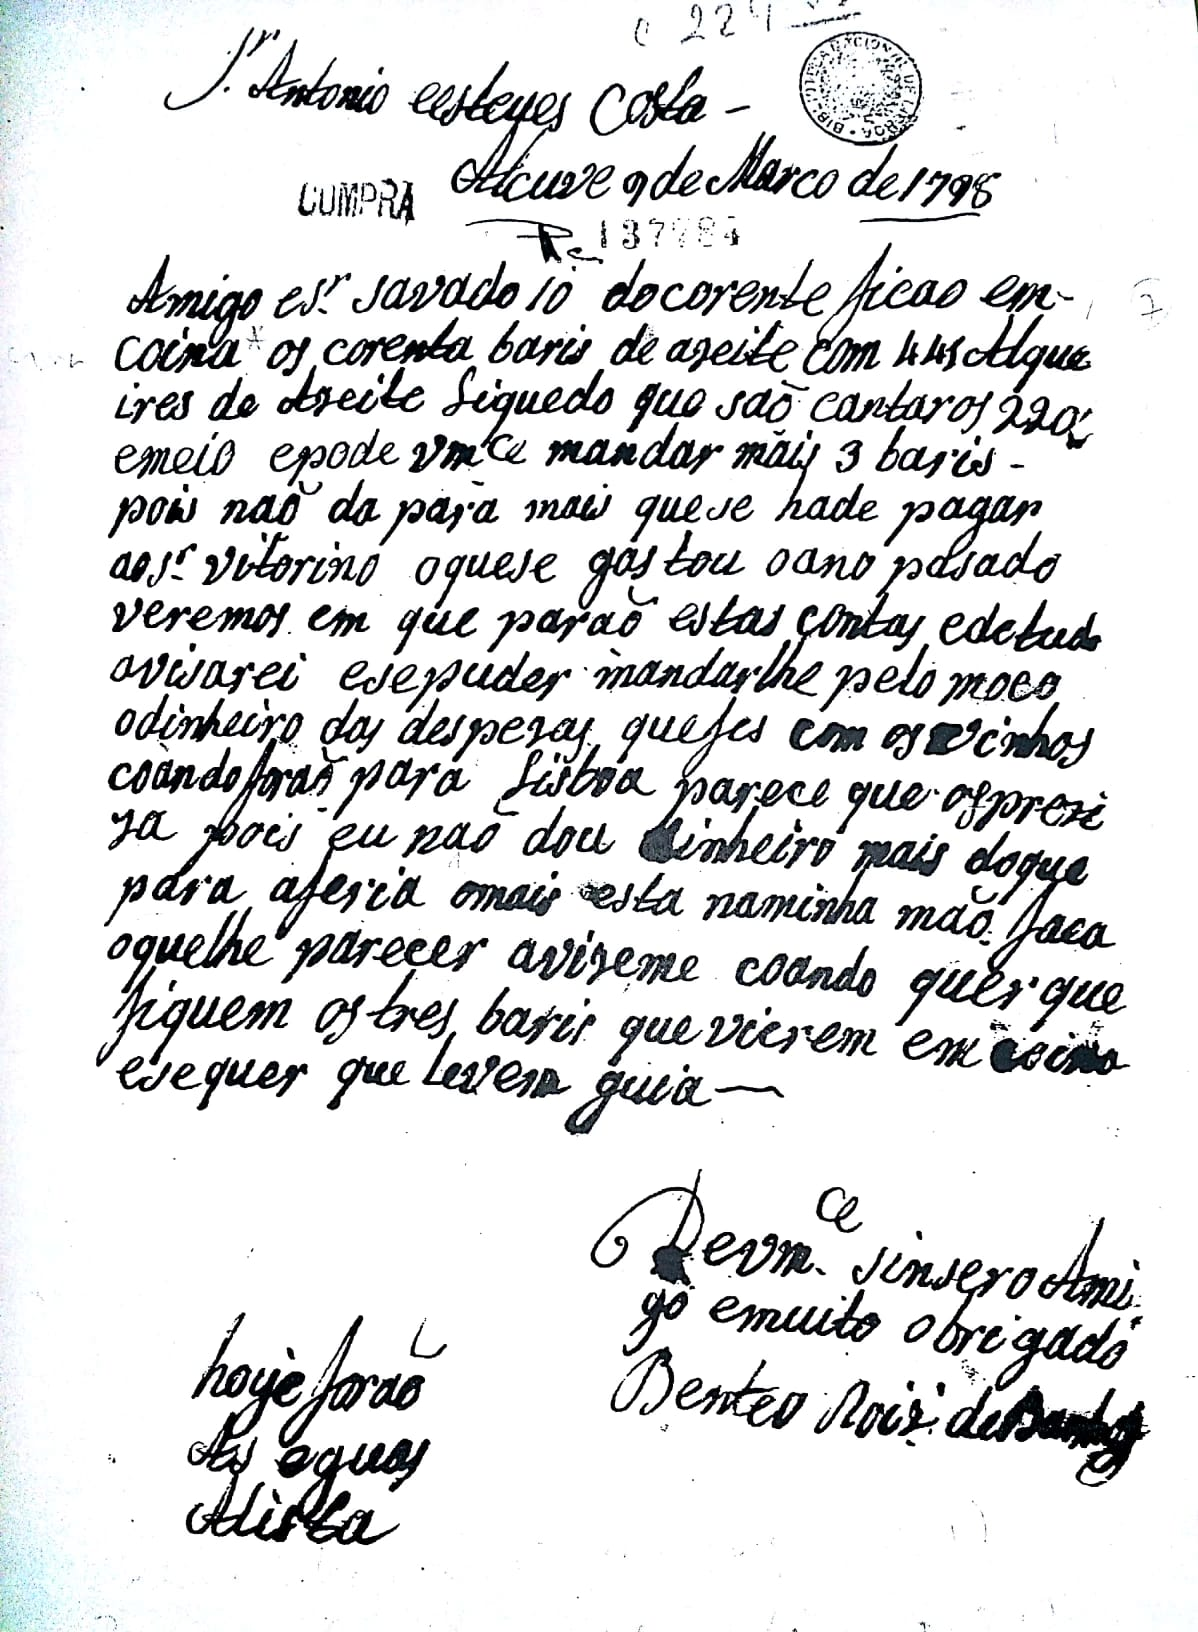 Sr. Antonio eesteves Costa -
Alcuve 9 de Marco de 1798
COMPRA
Rc 137984
Amigo e sr. savado 10 docorente ficao em-
coina os corenta baris de azeite com 441 Alque
ires de Azeite Liquedo que saõ cantaros 220
emeio epode vmce mandar mais 3 baris -
pois naõ da para mais quese hade pagar
aosr. vitorino oquese gastou oano pasado
veremos em que paraõ estas contas edetudo
avisarei esepuder mandarlhe pelo moco
odinheiro das despezas quefes com os vinhos
coando foraõ para Lisboa parece que ospresi
za pois eu naõ dou dinheiro mais doque
para aferia omais esta naminha maõ. faca
oquelhe parecer avizeme coando quer que
fiquem os tres baris que vierem em coina
esequer que levem guia —
Devmce. sinsero Ami
go emuito obrigado
Benteo Roiz de
hoye foraõ
As eguas
Alista